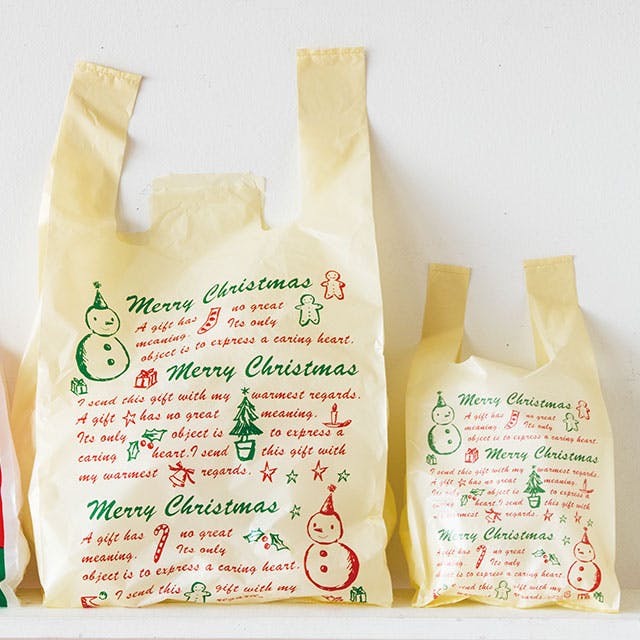 Merry Christmas
A gift has no great
meaning. Its only
object is to express a caring heart.
Merry Christmas
I send this gift with my warmest regards.
A gift has no great meaning.
Its only object is to express a
caring heart. I send this gift with
my warmest regards.
Merry Christmas
A gift has no great
meaning. Its only
object is to express a caring heart.
I send this Gift with my
warmest regards.
Merry Christmas
A gift has no great
meaning. Its only
object is to express a caring heart.
Merry Christmas
I send this gift with my warmest regards.
A gift has no great meaning.
Its only object is to express a
caring heart. I send this gift with
my warmest regards.
Merry Christmas
A gift has no great
meaning. Its only
object is to express a caring heart.
I send this Gift with my